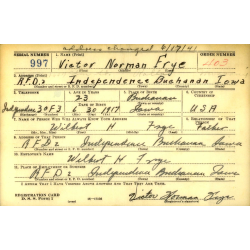 address changed 6/17/41
SERIAL NUMBER 1. NAME (Print) ORDER NUMBER
997 Victor Norman Frye 403
2. ADDRESS (Print)
R.F.D.2 Independence Buchanan Iowa
3. TELEPHONE 4. AGE IN YEARS 5. PLACE OF BIRTH 6. COUNTRY OF CITIZENSHIP
23 Buchanan
DATE OF BIRTH
Independence 3 of 3 30 1917 Iowa USA
7. NAME OF PERSON WHO WILL ALWAYS KNOW YOUR ADDRESS 8. RELATIONSHIP OF THAT PERSON
Wilbert H Frye Father
9. ADDRESS OF THAT PERSON
R F D 2 Independence Buchanan Iowa
10. EMPLOYER'S NAME
Wilbert H Frye
11. PLACE OF EMPLOYMENT OR BUSINESS
R F D 2 Independence Buchanan Iowa
I AFFIRM THAT I HAVE VERIFIED ABOVE ANSWERS AND THAT THEY ARE TRUE.
REGISTRATION CARD
D. S. S. Form 1
Victor Norman Frye